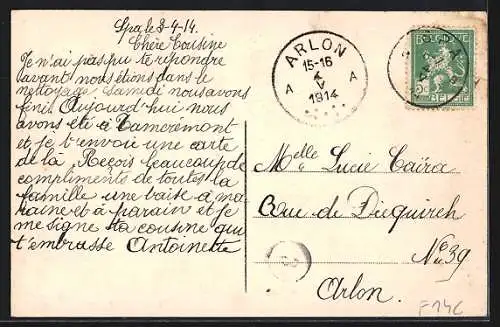 Spa, le 3-4-14.
Chère Cousine
Je n'ai pas pu te répondre
avant nous étions dans le
nettoyage Samedi nous avons
fini Aujourd'hui nous
avons été a
et je t'envoie une carte
de là, Reçois beaucoup de
compliments de toutes la
famille une baise a ma
raine et a parain et je
me signe ta cousine qui
t'embrasse Antoinette
ARLON
15-16
V
1914
A A
BELGIQUE
5c
BELGIË
Melle Lucie Caëra
de Diequirch
No 39
Arlon.
F14C